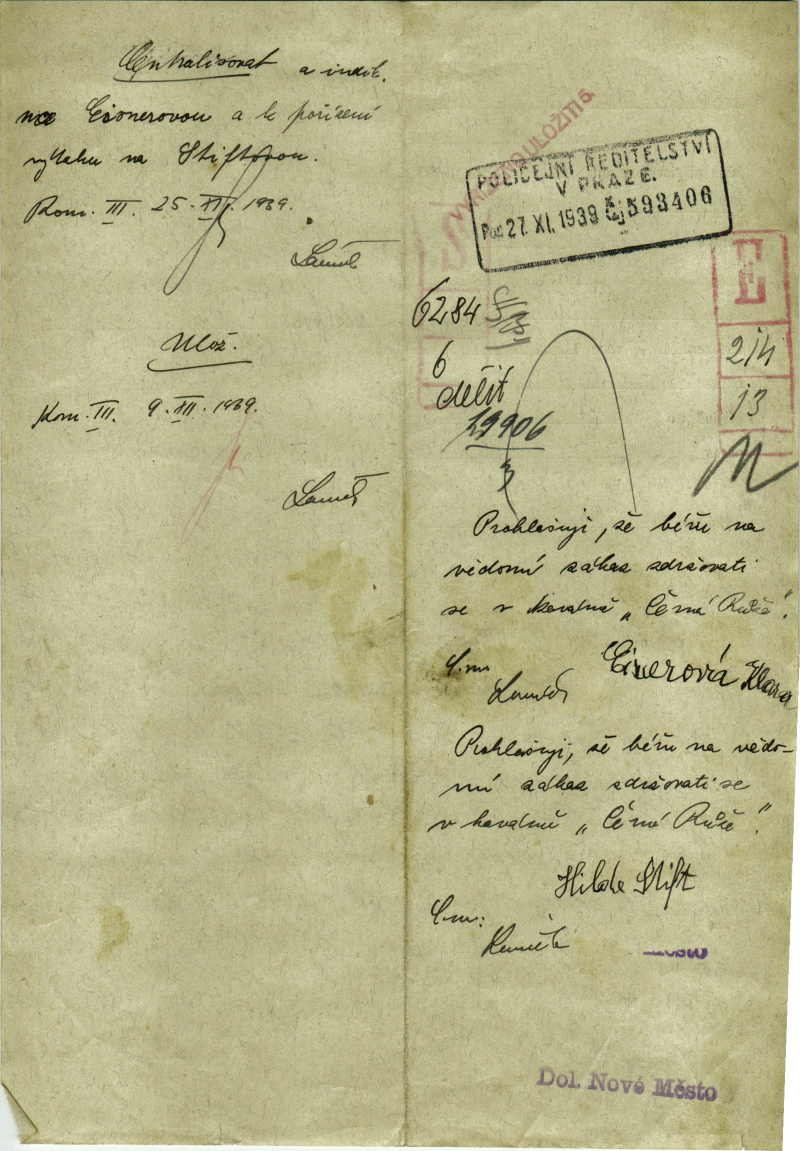 Centralisovat a indik.
na Eisnerovou a k pořízení
výtahu na Stiftovou.
Kom. III. 25. XI. 1939.
Ulož.
Kom. III. 9. XII. 1939.
POLICEJNÍ ŘEDITELSTVÍ
V PRAZE.
27. XI. 1939 Čj 593406
E
214
13
6284
6
dělit
29906
3
Prohlašuji, že béřu na
vědomí zákaz zdržovati
se v kavárně „Černá Růže“.
Eisnerová Klara
Prohlašuji, že béřu na vědo-
mí zákaz zdržovati se
v kavárně „Černá Růže“.
Hilde Stift
Dol. Nové Město